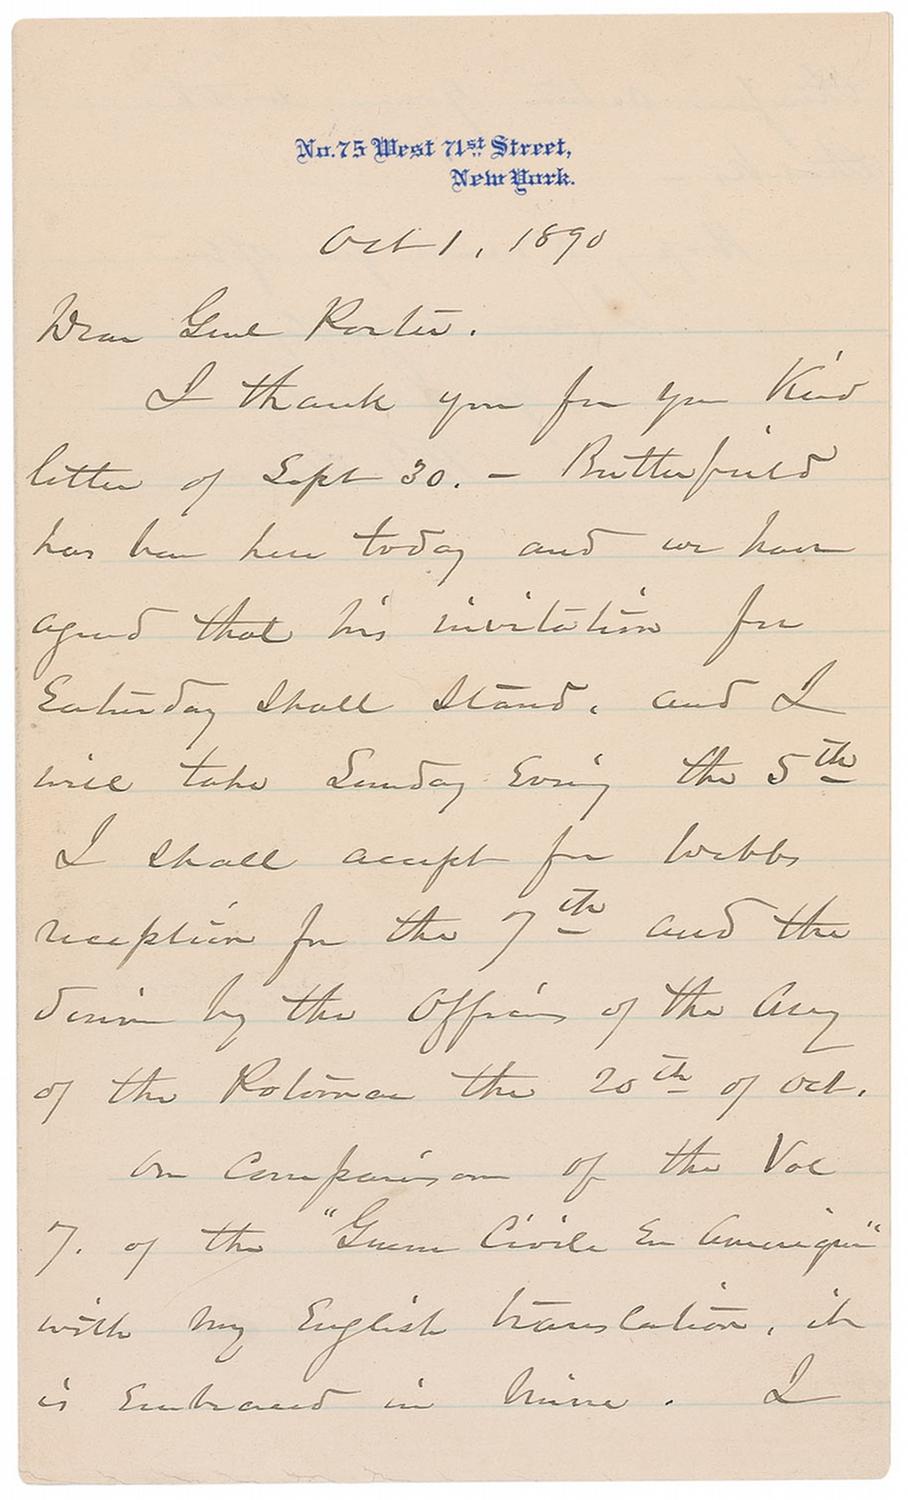 No. 75 West 71st Street,
New York.
Oct 1, 1890
Dear Genl Porter.
I thank you for your kind
letter of Sept 30. - Butterfield
has been here today and we have
agreed that his invitation for
Saturday shall stand. and I
will take Sunday Evening the 5th
I shall accept for Webbs
reception for the 7th and the
dinner by the Officers of the Army
of the Potomac the 20th of Oct.
On comparison of the Vol
7. of the "Guerre Civile En Amerique"
with my English translation, it
is Embraced in mine. I